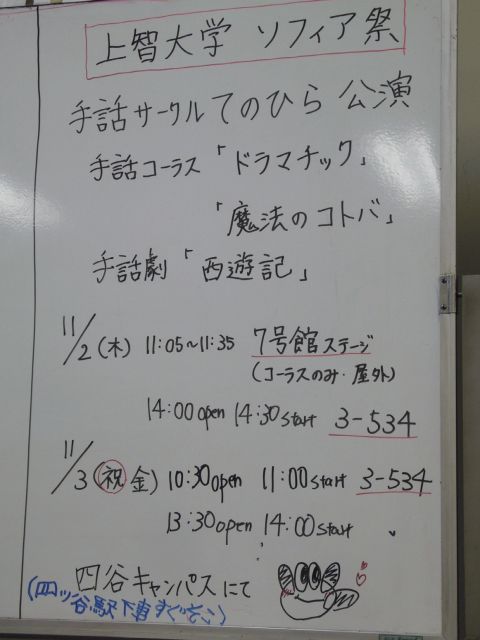 上智大学 ソフィア祭
手話サークルてのひら 公演
手話コーラス「ドラマチック」
「魔法のコトバ」
手話劇「西遊記」
11/2(木) 11:05~11:35 7号館ステージ
(コーラスのみ・屋外)
14:00open 14:30start 3-534
11/3(祝金) 10:30open 11:00start 3-534
13:30open 14:00start
四谷キャンパスにて
(四ッ谷駅下車すぐそこ)